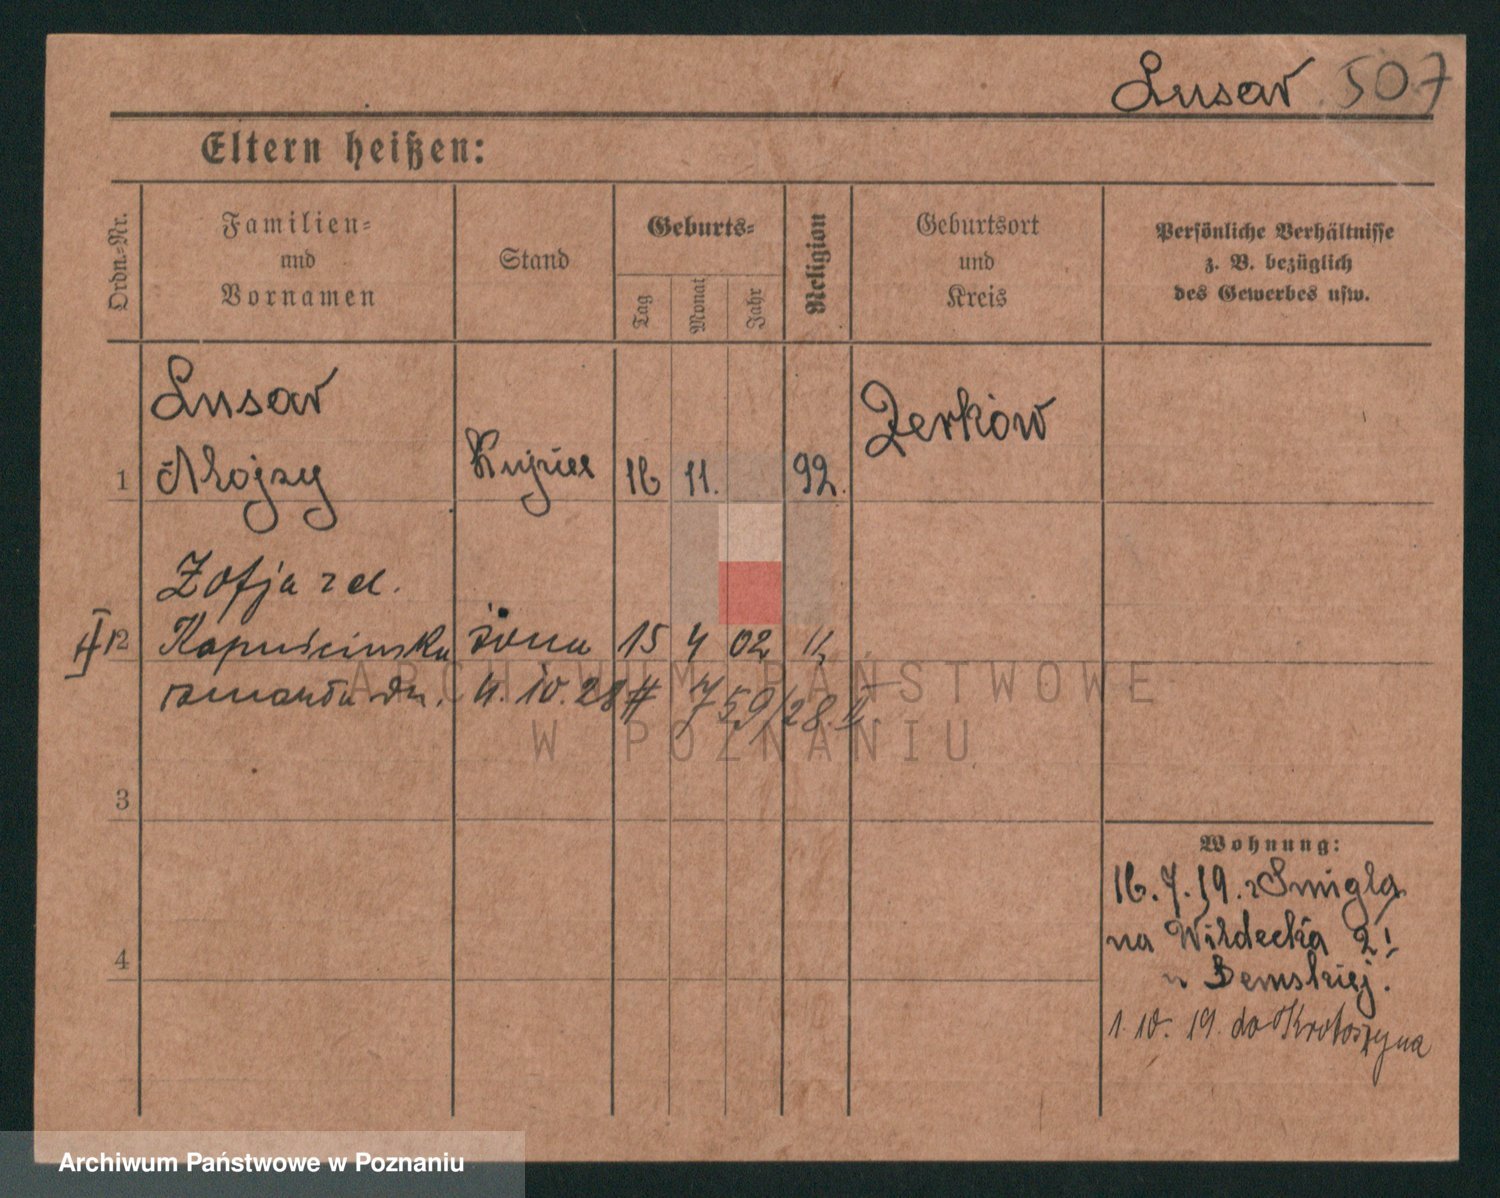 Lusar 507
Eltern heißen:
Ordn.-Nr.
Familien-
und
Vornamen
Stand
Geburts-
Tag
Monat
Jahr
Religion
Geburtsort
und
Kreis
Persönliche Verhältnisse
z. B. bezüglich
des Gewerbes usw.
Lusar
1 Alojzy 16 11. 92.
Zerków
Zofja z d.
2 Kapuścinska żona 15 4 02
zmarła dn. 4. 10. 28 # 759/28.
3
4
Wohnung:
16.7.19. z Śmigla
na Wildecka 2!
u Bemskiej.
1. 10. 19. do Krotoszyna
ARCHIWUM PAŃSTWOWE
W POZNANIU
Archiwum Państwowe w Poznaniu